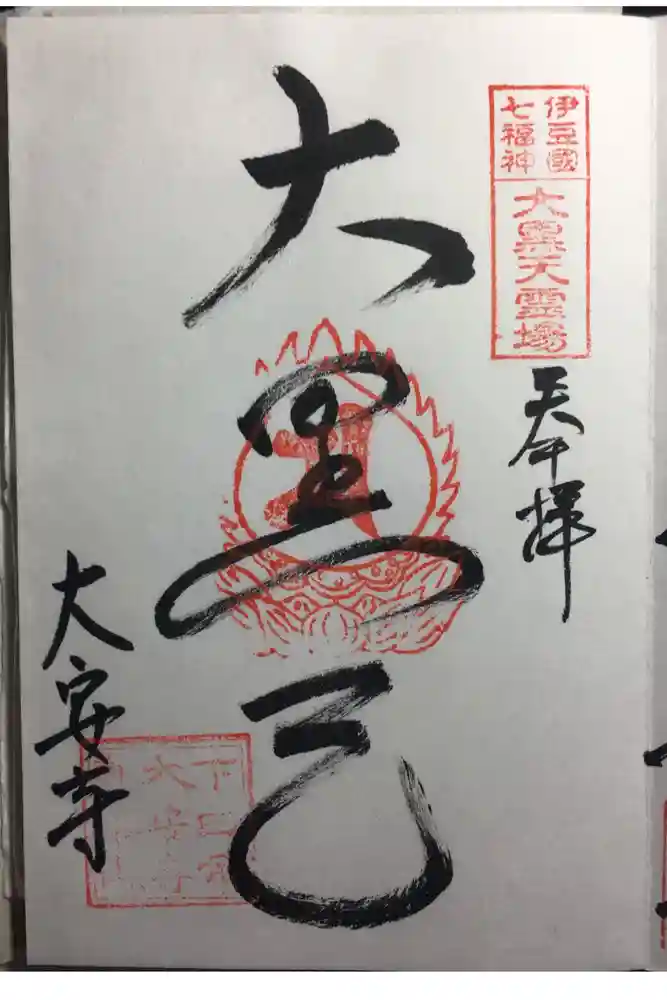 伊豆國
七福神
大黒天霊場
奉拝
大黒天
大安寺
大安寺